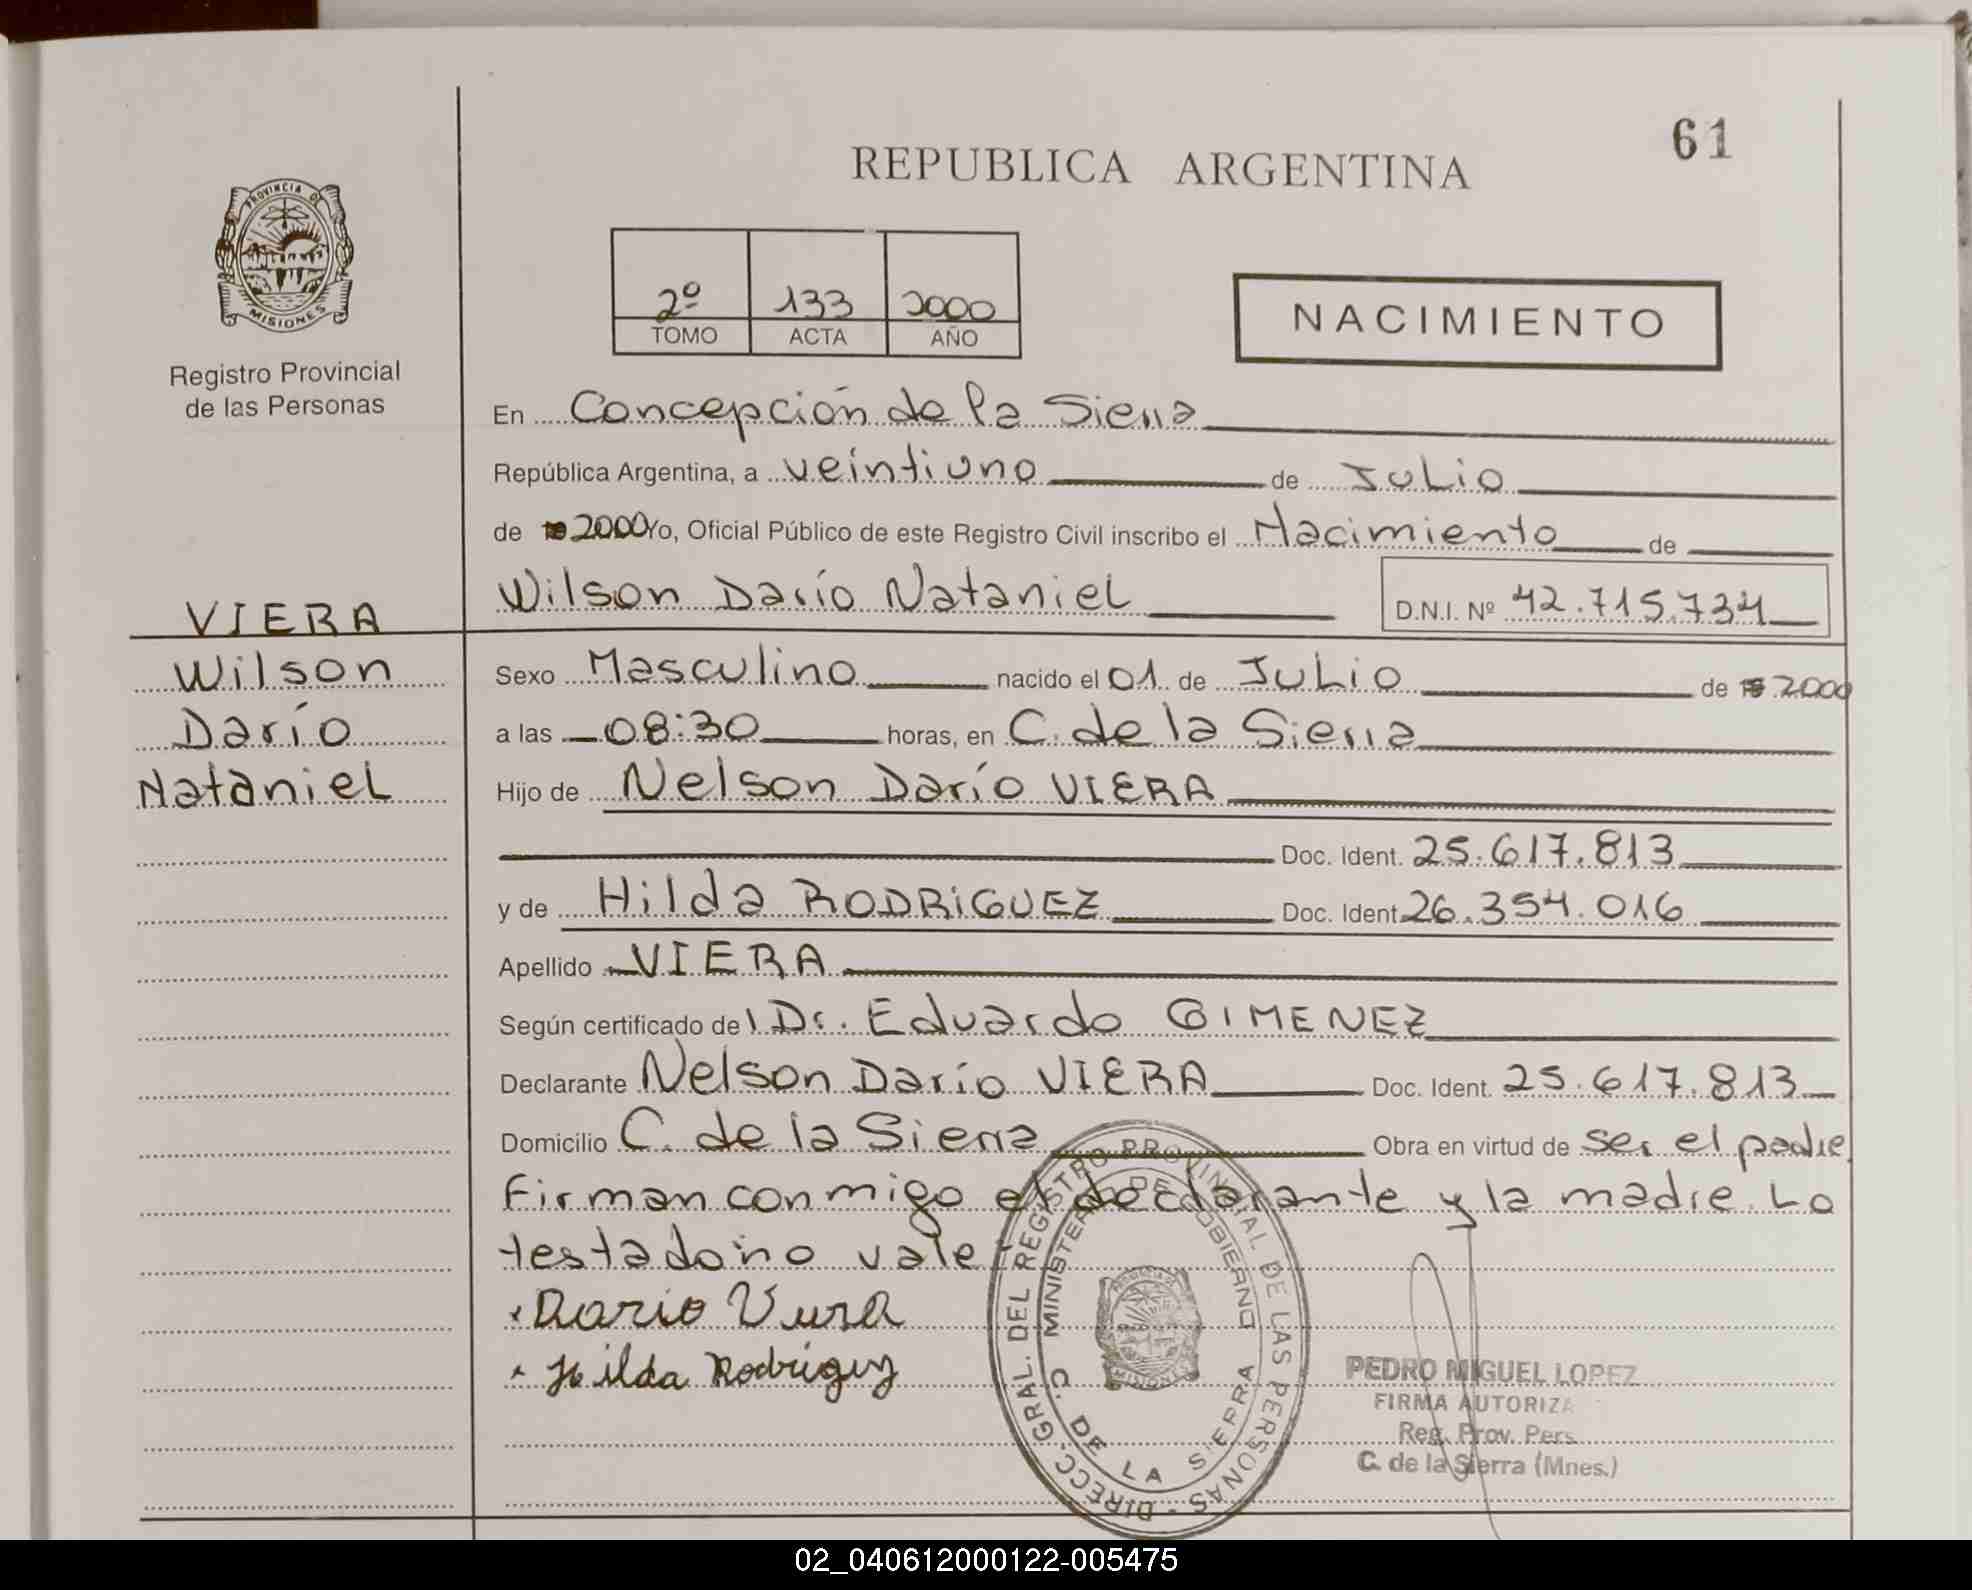 61
REPUBLICA ARGENTINA
PROVINCIA DE
MISIONES
Registro Provincial
de las Personas
2º 133 2000
TOMO ACTA AÑO
NACIMIENTO
En Concepción de la Sierra
República Argentina, a veintiuno de Julio
de 2000 Yo, Oficial Público de este Registro Civil inscribo el Nacimiento de
Wilson Darío Nataniel D.N.I. Nº 42.715.734
VIERA
Wilson
Darío
Nataniel
Sexo Masculino nacido el 01 de Julio de 2000
a las 08:30 horas, en C. de la Sierra
Hijo de Nelson Darío VIERA
Doc. Ident. 25.617.813
y de Hilda RODRIGUEZ Doc. Ident. 26.354.016
Apellido VIERA
Según certificado del Dr. Eduardo GIMENEZ
Declarante Nelson Darío VIERA Doc. Ident. 25.617.813
Domicilio C. de la Sierra Obra en virtud de ser el padre.
Firman conmigo el declarante y la madre. Lo
testado: no vale
Dario Viera
Hilda Rodriguez
DIRECC. GRAL. DEL REGISTRO PROVINCIAL DE LAS PERSONAS -
MINISTERIO DE GOBIERNO
C. DE LA SIERRA
MISIONES
PEDRO MIGUEL LOPEZ
FIRMA AUTORIZA
Reg. Prov. Pers.
C. de la Sierra (Mnes.)
02_040612000122-005475